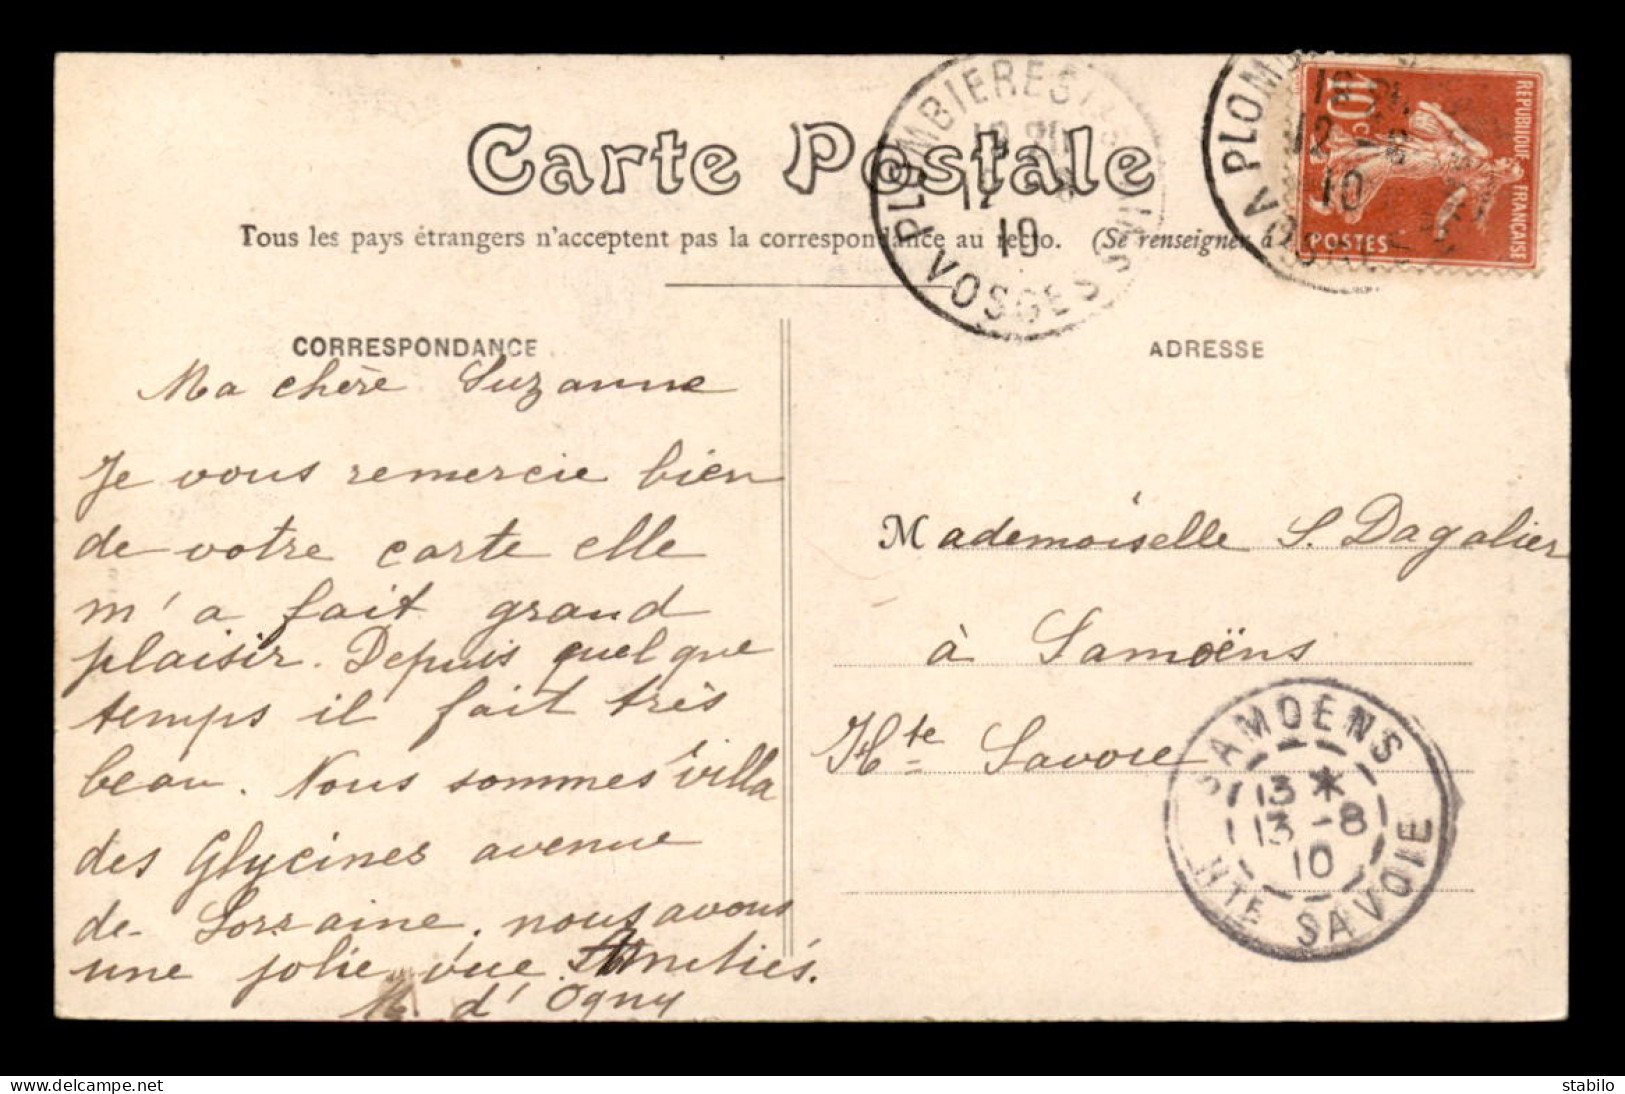 Carte Postale
Tous les pays étrangers n'acceptent pas la correspondance au recto. (Se renseigner à
CORRESPONDANCE
Ma chère Suzanne
Je vous remercie bien
de votre carte elle
m'a fait grand
plaisir. Depuis quelque
temps il fait très
beau. Nous sommes villa
des Glycines avenue
de Lorraine, nous avons
une jolie vue. Amitiés.
M. d'Ogny
PLOMBIERES
12
10
VOSGES
PLOM
12 -8
10
10c
REPUBLIQUE FRANCAISE
POSTES
ADRESSE
Mademoiselle S. Dagalier
à Samoëns
Hte Savoie
SAMOENS
13 *
13 -8
10
HTE SAVOIE
stabilo